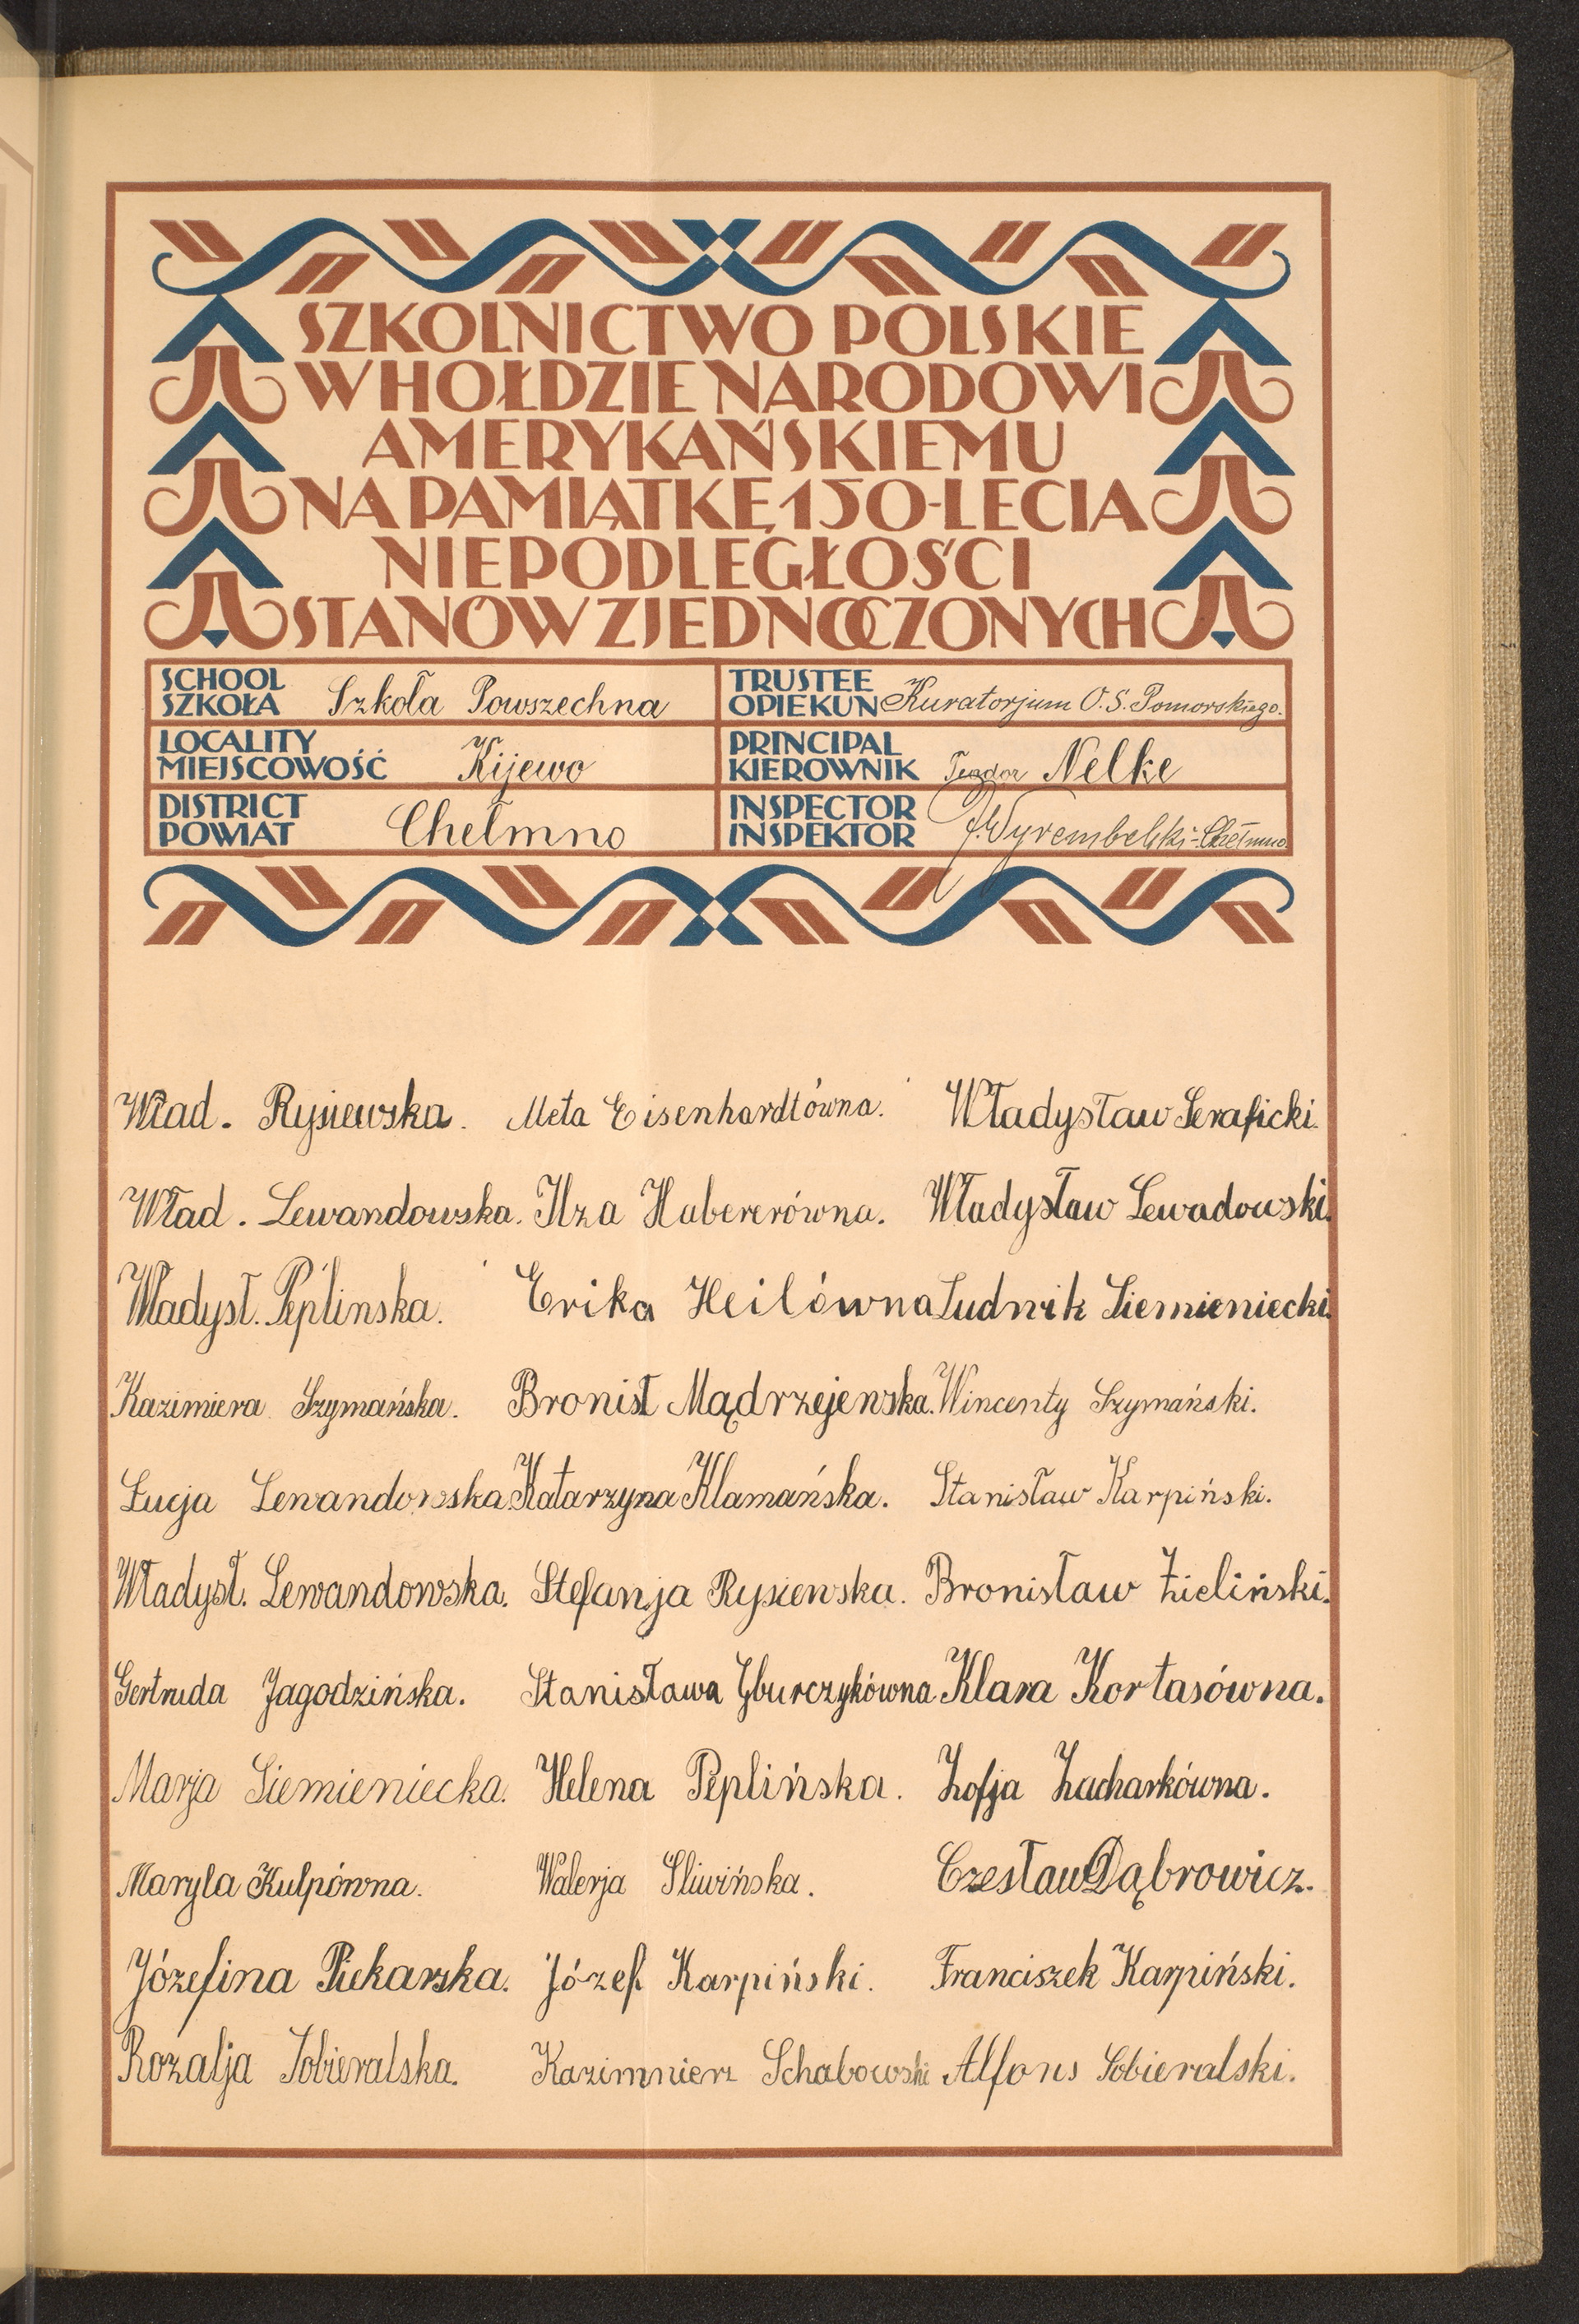 SZKOLNICTWO POLSKIE
W HOŁDZIE NARODOWI
AMERYKAŃSKIEMU
NA PAMIĄTKĘ 150-LECIA
NIEPODLEGŁOŚCI
STANÓW ZJEDNOCZONYCH
SCHOOL
SZKOŁA Szkoła Powszechna
TRUSTEE
OPIEKUN Kuratorjum O.S. Pomorskiego.
LOCALITY
MIEJSCOWOŚĆ Kijewo
PRINCIPAL
KIEROWNIK Teodor Nelke
DISTRICT
POWIAT Chełmno
INSPECTOR
INSPEKTOR J. Wyrembelski - Chełmno
Wład. Rysiewska. Meta Eisenhardtówna. Władysław Seraficki.
Wład. Lewandowska. Ilza Habererówna. Władysław Lewadowski.
Władysł. Peplinska. Erika Heilówna Ludwik Siemieniecki.
Kazimiera Szymańska. Bronisł Mądrzejewska. Wincenty Szymański.
Łucja Lewandowska Katarzyna Klamańska. Stanisław Karpiński.
Władysł. Lewandowska. Stefanja Rysiewska. Bronisław Zieliński.
Gertruda Jagodzińska. Stanisława Zburczykówna Klara Kortasówna.
Marja Siemieniecka. Helena Peplińska. Zofja Zacharkówna.
Maryla Kulpówna. Walerja Śliwińska. Czesław Dąbrowicz.
Józefina Piekarska. Józef Karpiński. Franciszek Karpiński.
Rozalja Sobieralska. Kazimnierz Schabowski Alfons Sobieralski.